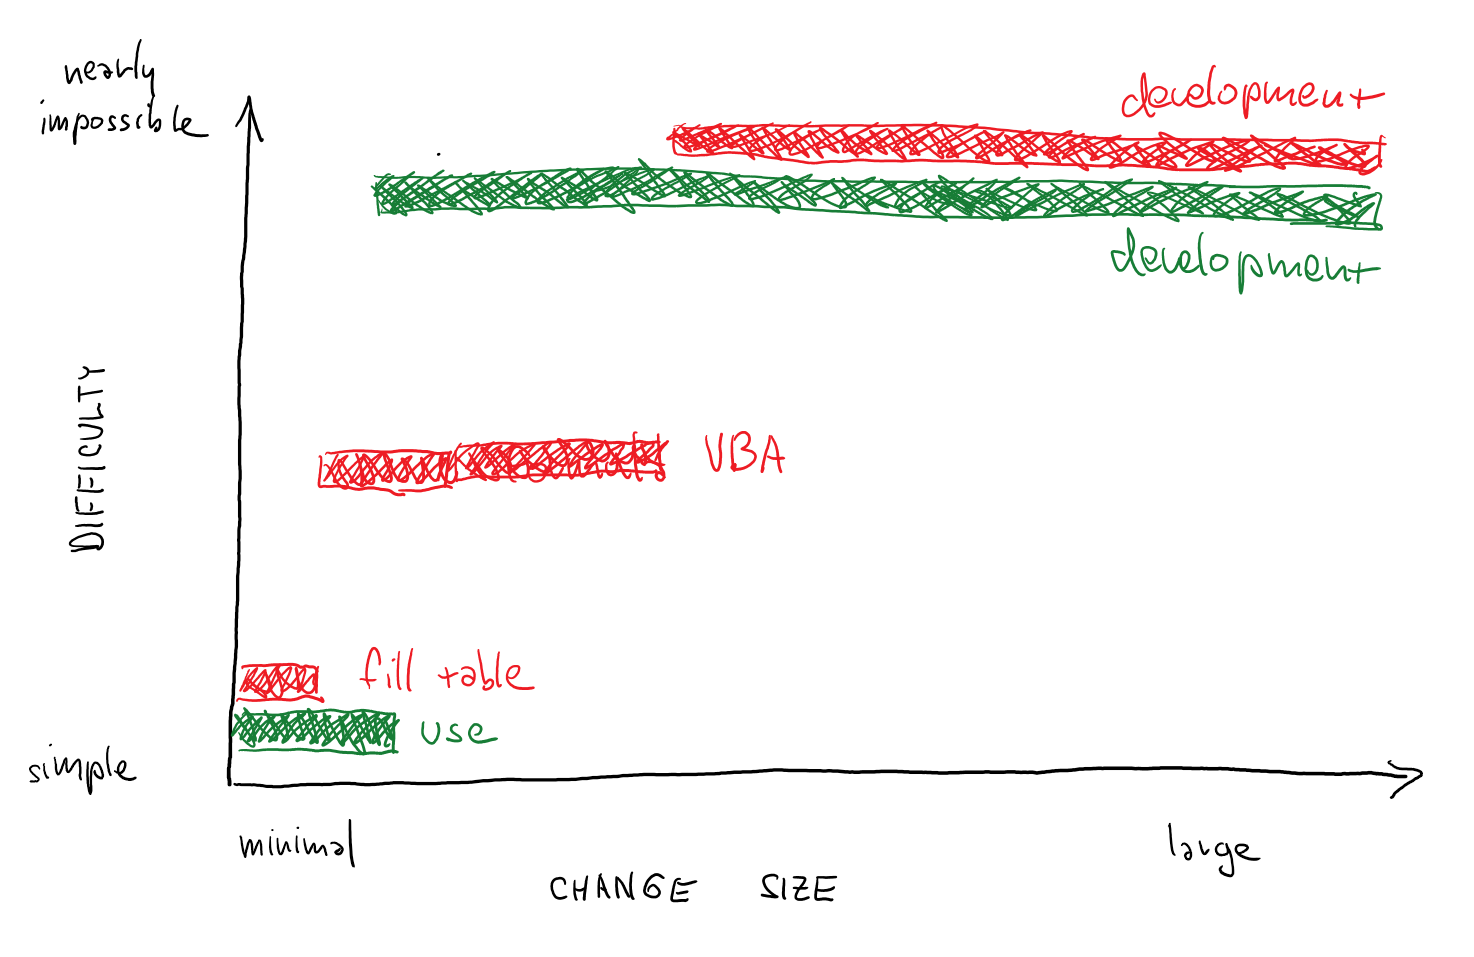 nearly
impossible
development
development
DIFFICULTY
VBA
fill table
use
simple
minimal
large
CHANGE SIZE